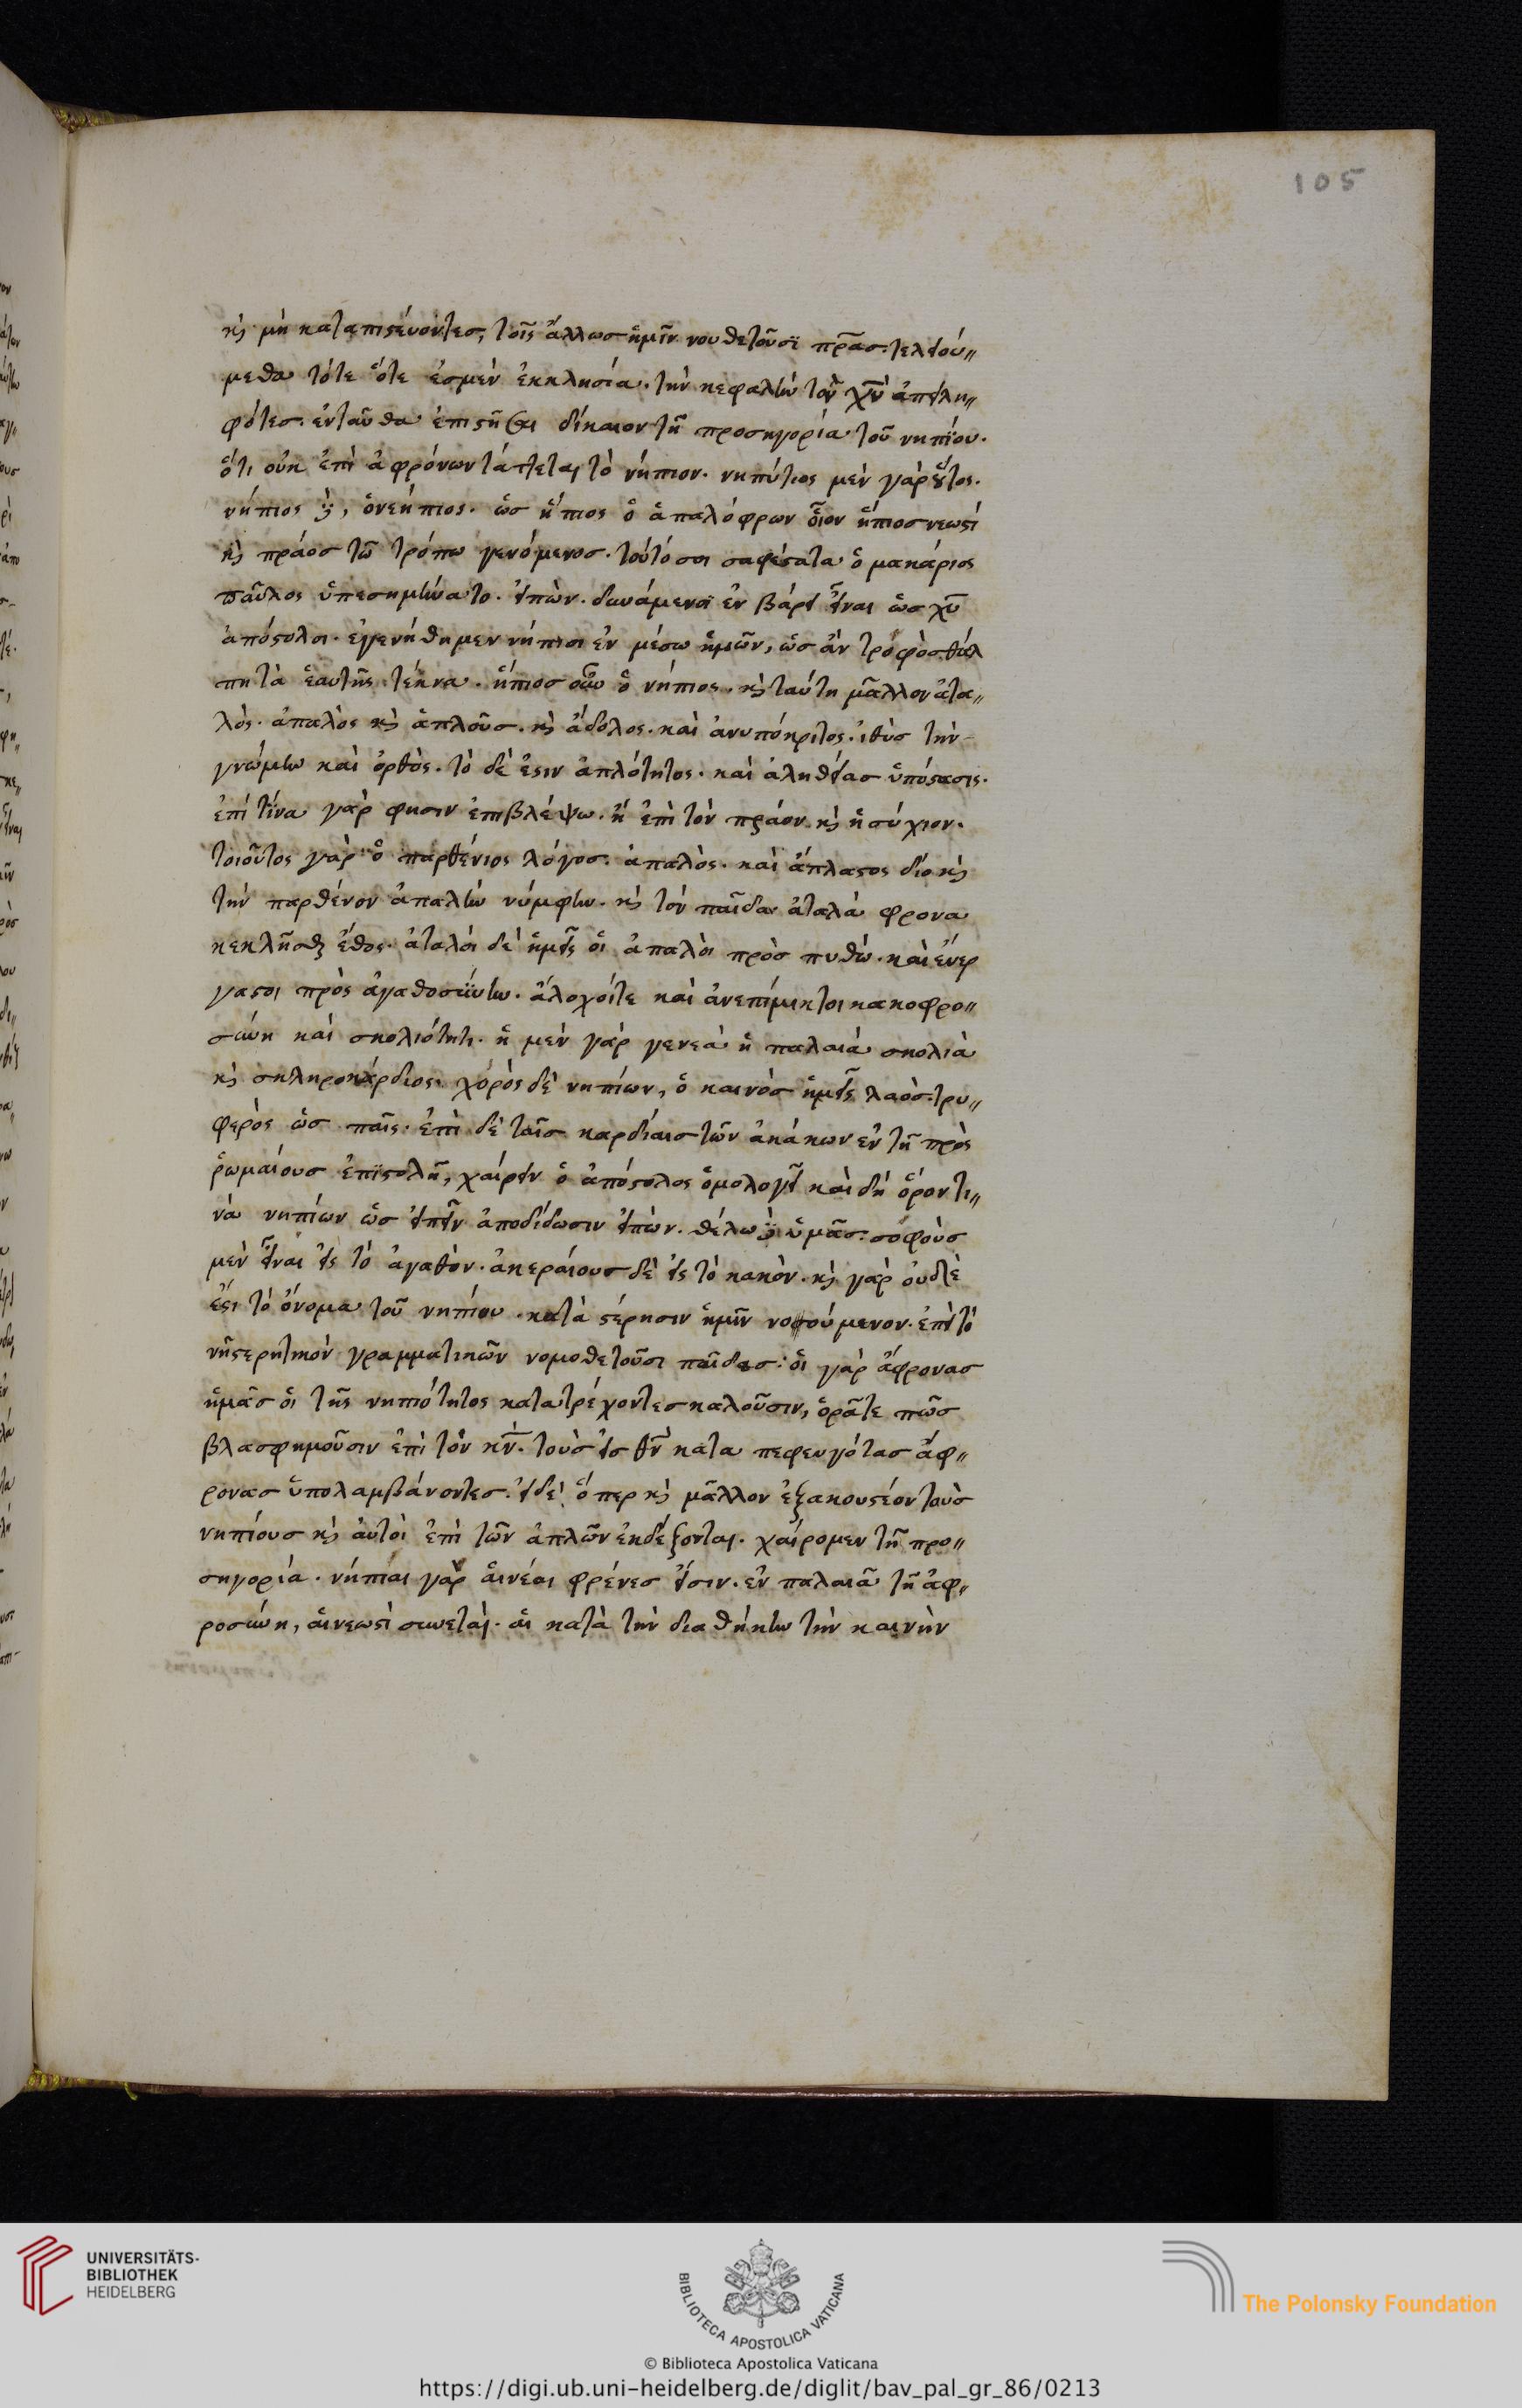 105
κὶ μὴ καταπιστεύοντες, τοῖς ἄλλως ἡμῖν νουθετοῦσϊ πρ̅ας. τελειού〃
μεθα τότε ὅτε ἐσμὲν ἐκκλησία. τὴν κεφαλὴν τὸν χν̅ ἀπειλη〃
φότες. ἐνταῦθα ἐπιστῆσαι δίκαιον τῇ προσηγορία τοῦ νηπίου.
ὅτι οὐκ ἐπὶ ἀφρόνων τάττεται τὸ νήπιον. νηπύτιος μὲν γὰρ οὗτος.
νήπιος δὲ, ὁνεήπιος. ὡς ἤπιος ὁ ἁπαλόφρων οἷον ἤπιος νεωστί
κὶ πράος τῶ τρόπω γενόμενος. τοῦτό σοι σαφέστατα ὁ μακάριος
παῦλος ὑπεσημήνατο. εἰπὼν. δυνάμενοϊ ἐν βάρει εἶναι ὡς χυ̅
ἀπόστολοι. ἐγενήθημεν νήπιοι ἐν μέσω ἡμῶν, ὡς ἂν τροφὸς θάλ
πη τὰ ἑαυτῆς τέκνα. ἤπιος οὖν ὁ νήπιος. κὶ ταύτη μᾶλλον ἀτα〃
λός. ἁπαλὸς κὶ ἁπλοῦς. κὶ ἄδολος. καὶ ἀνυπόκριτος. ἰθὺς τὴν
γνώμην καὶ ὀρθὸς. τὸ δὲ ἔστιν ἁπλότητος. καὶ ἀληθείας ὑπόστασις.
ἐπὶ τίνα γὰρ φησιν ἐπιβλέψω. ἢ ἐπὶ τὸν πρᾶον κὶ ἡσύχιον.
τοιοῦτος γὰρ ὁ παρθένιος λόγος. ἁπαλὸς. καὶ ἄπλαστος διὸ κὶ
τὴν παρθένον ἁπαλὴν νύμφην. κὶ τὸν παῖδα ἀταλά φρονα
κεκλῆσθαι ἔθος. ἀταλοὶ δὲ ἡμεῖς οἱ ἁπαλοὶ πρὸς πυθὼ. καὶ εὐερ
γαστοι πρὸς ἀγαθοσύνην. ἄλοχοίτε καὶ ἀνεπίμικτοι κακοφρο〃
σύνη καὶ σκολιότητι. ἡ μὲν γὰρ γενεὰ ἡ παλαιὰ σκολιὰ
κὶ σκληροκάρδιος. χορὸς δὲ νηπίων, ὁ καινὸς ἡμεῖς λαὸς. τρυ〃
φερὸς ὡς παῖς. ἐπὶ δὲ ταῖς καρδίαις τῶν ἀκάκων ἐν τῇ πρὸς
ῥωμαίους ἐπϊστολῇ, χαίρειν ὁ ἀπόστολος ὁμολογεῖ καὶ δὴ ὅρον τι〃
νὰ νηπίων ὡς εἰπεῖν ἀποδίδωσιν εἰπὼν. θέλω δὲ ὑμᾶς. σοφοὺς
μὲν εἶναι εἰς τὸ ἀγαθὸν. ἀκεραίους δὲ εἰς τὸ κακὸν. κὶ γὰρ οὐδὲ
ἔστι τὸ ὄνομα τοῦ νηπίου. κατὰ στέρησιν ἡμῖν νοούμενον. ἐπεὶ τὸ
νῆ στερητικὸν γραμματικῶν νομοθετοῦσι παῖδες: οἱ γὰρ ἄφρονας
ἡμᾶς οἱ τῆς νηπιότητος κατατρέχοντες καλοῦσιν, ὁρᾶτε πῶς
βλασφημοῦσιν ἐπὶ τὸν κν̅. τοὺς εἰς θν̅ κατα πεφευγότας ἄφ〃
ρονας ὑπολαμβάνοντες. εἰ δὲ ὅπερ κὶ μᾶλλον ἐξακουστέον τοὺς
νηπίους κὶ αὐτοὶ ἐπὶ τῶν ἁπλῶν ἐκδέξονται. χαίρομεν τῇ προ〃
σηγορία. νήπιαι γὰρ αἱ νέαι φρένες εἰσιν. ἐν παλαιᾶ τῇ ἀφ〃
ροσύνη, αἱ νεωστὶ συνεταὶ. αἱ κατὰ τὴν διαθήκην τὴν καινὴν
UNIVERSITÄTS-
BIBLIOTHEK
HEIDELBERG
BIBLIOTECA APOSTOLICA VATICANA
The Polonsky Foundation
© Biblioteca Apostolica Vaticana
https://digi.ub.uni-heidelberg.de/diglit/bav_pal_gr_86/0213